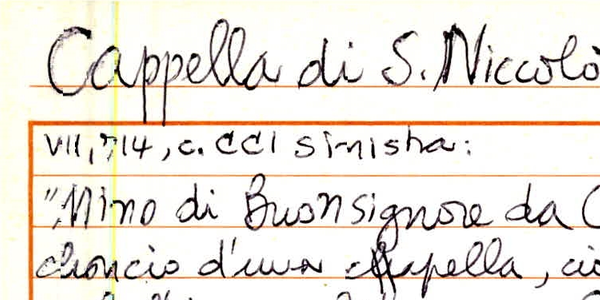 Cappella di S. Niccolò
VII, 714, c. CCI sinistra:
"Nino di Buonsignore da
choncio d'una chapella,